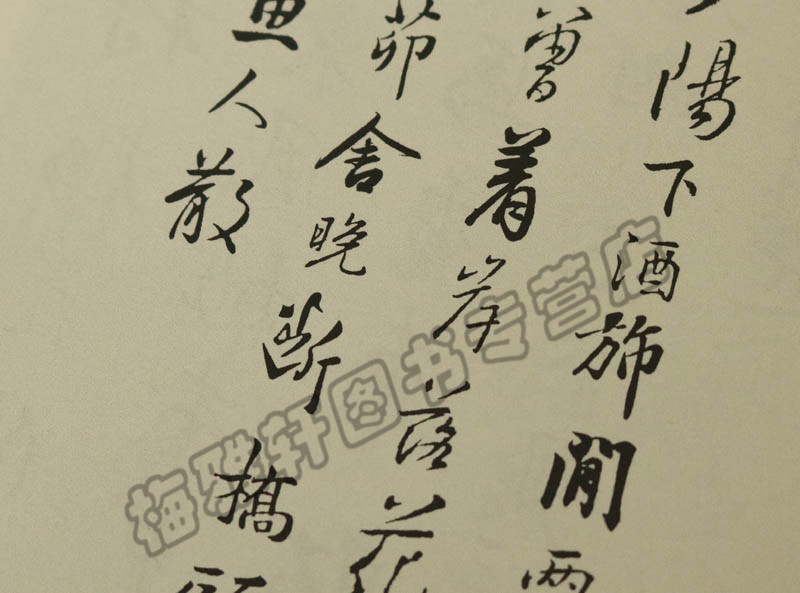 陽下酒旆閒两
曾着岸落花
茆舍晚断橋
魚人散
梅雅轩图书专营店